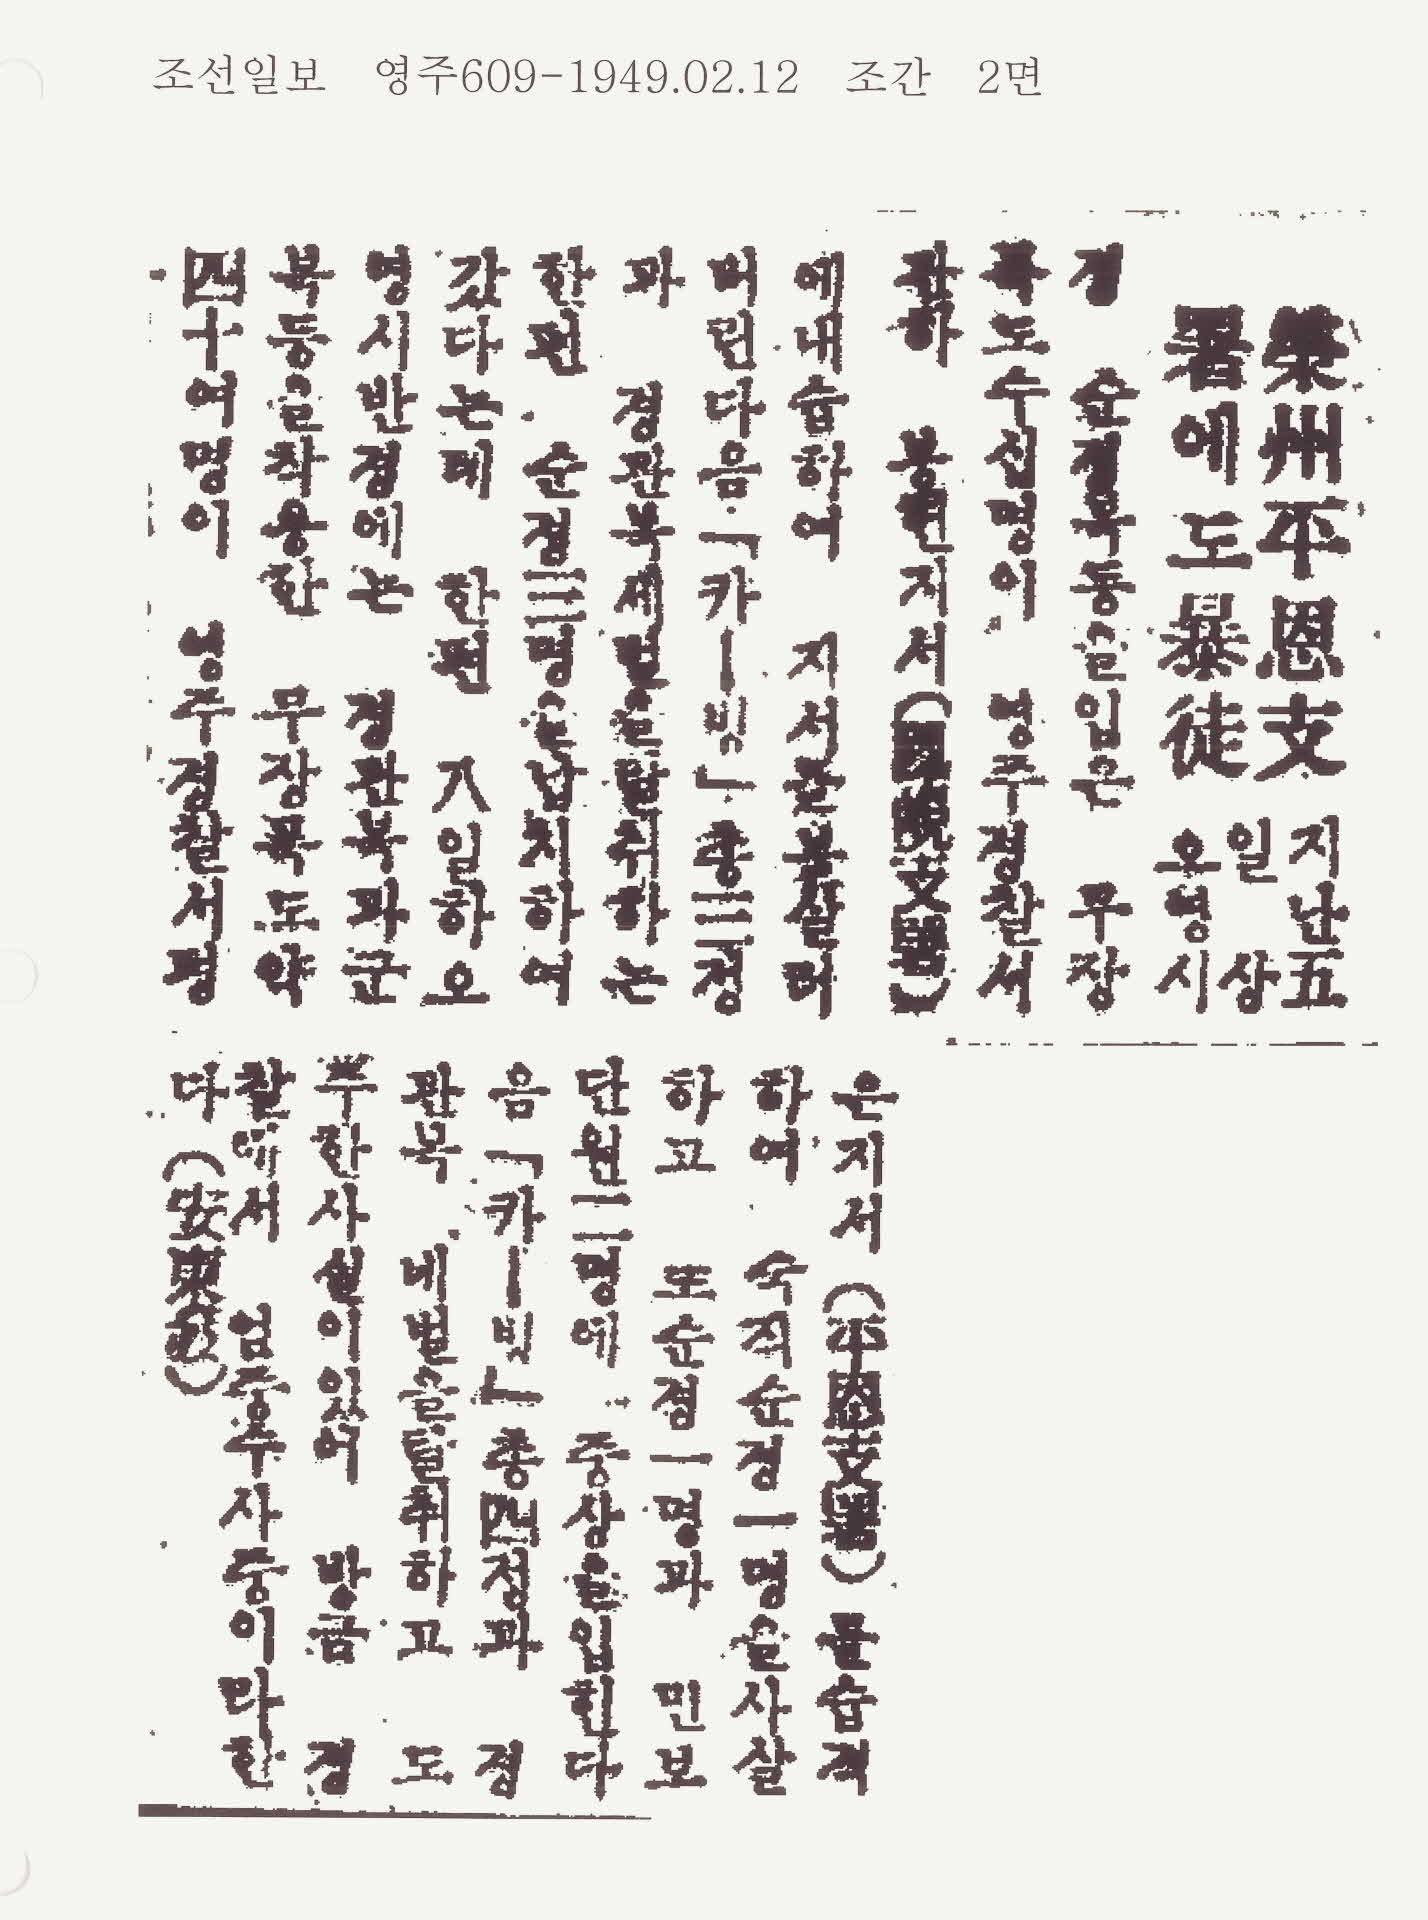 조선일보 영주609-1949.02.12 조간 2면
榮州平恩支
署에도暴徒
지난五
일 상
오녕시
경 순경복등을입은 무장
폭도수십명이 영주경찰서
관하 봉현지서(鳳峴支署)
에내습하여 지서를불살러
버린다음「카ー빙」총三정
과 경관복세벌을탈취하는
한편 순경三명을납치하여
갔다는데 한편 八일하오
영시반경에는 경관복과군
복등을착용한 무장폭도약
四十여명이 영주경찰서평
은지서(平恩支署)를습격
하여 숙직순경一명을사살
하고 또순경一명과 민보
단원二명에 중상을입힌다
음「카ー빙」총四정과 경
관복 네벌을탈취하고 도
주한사실이있어 방금 경
찰에서 엄중수사중이라한
다(安東發)